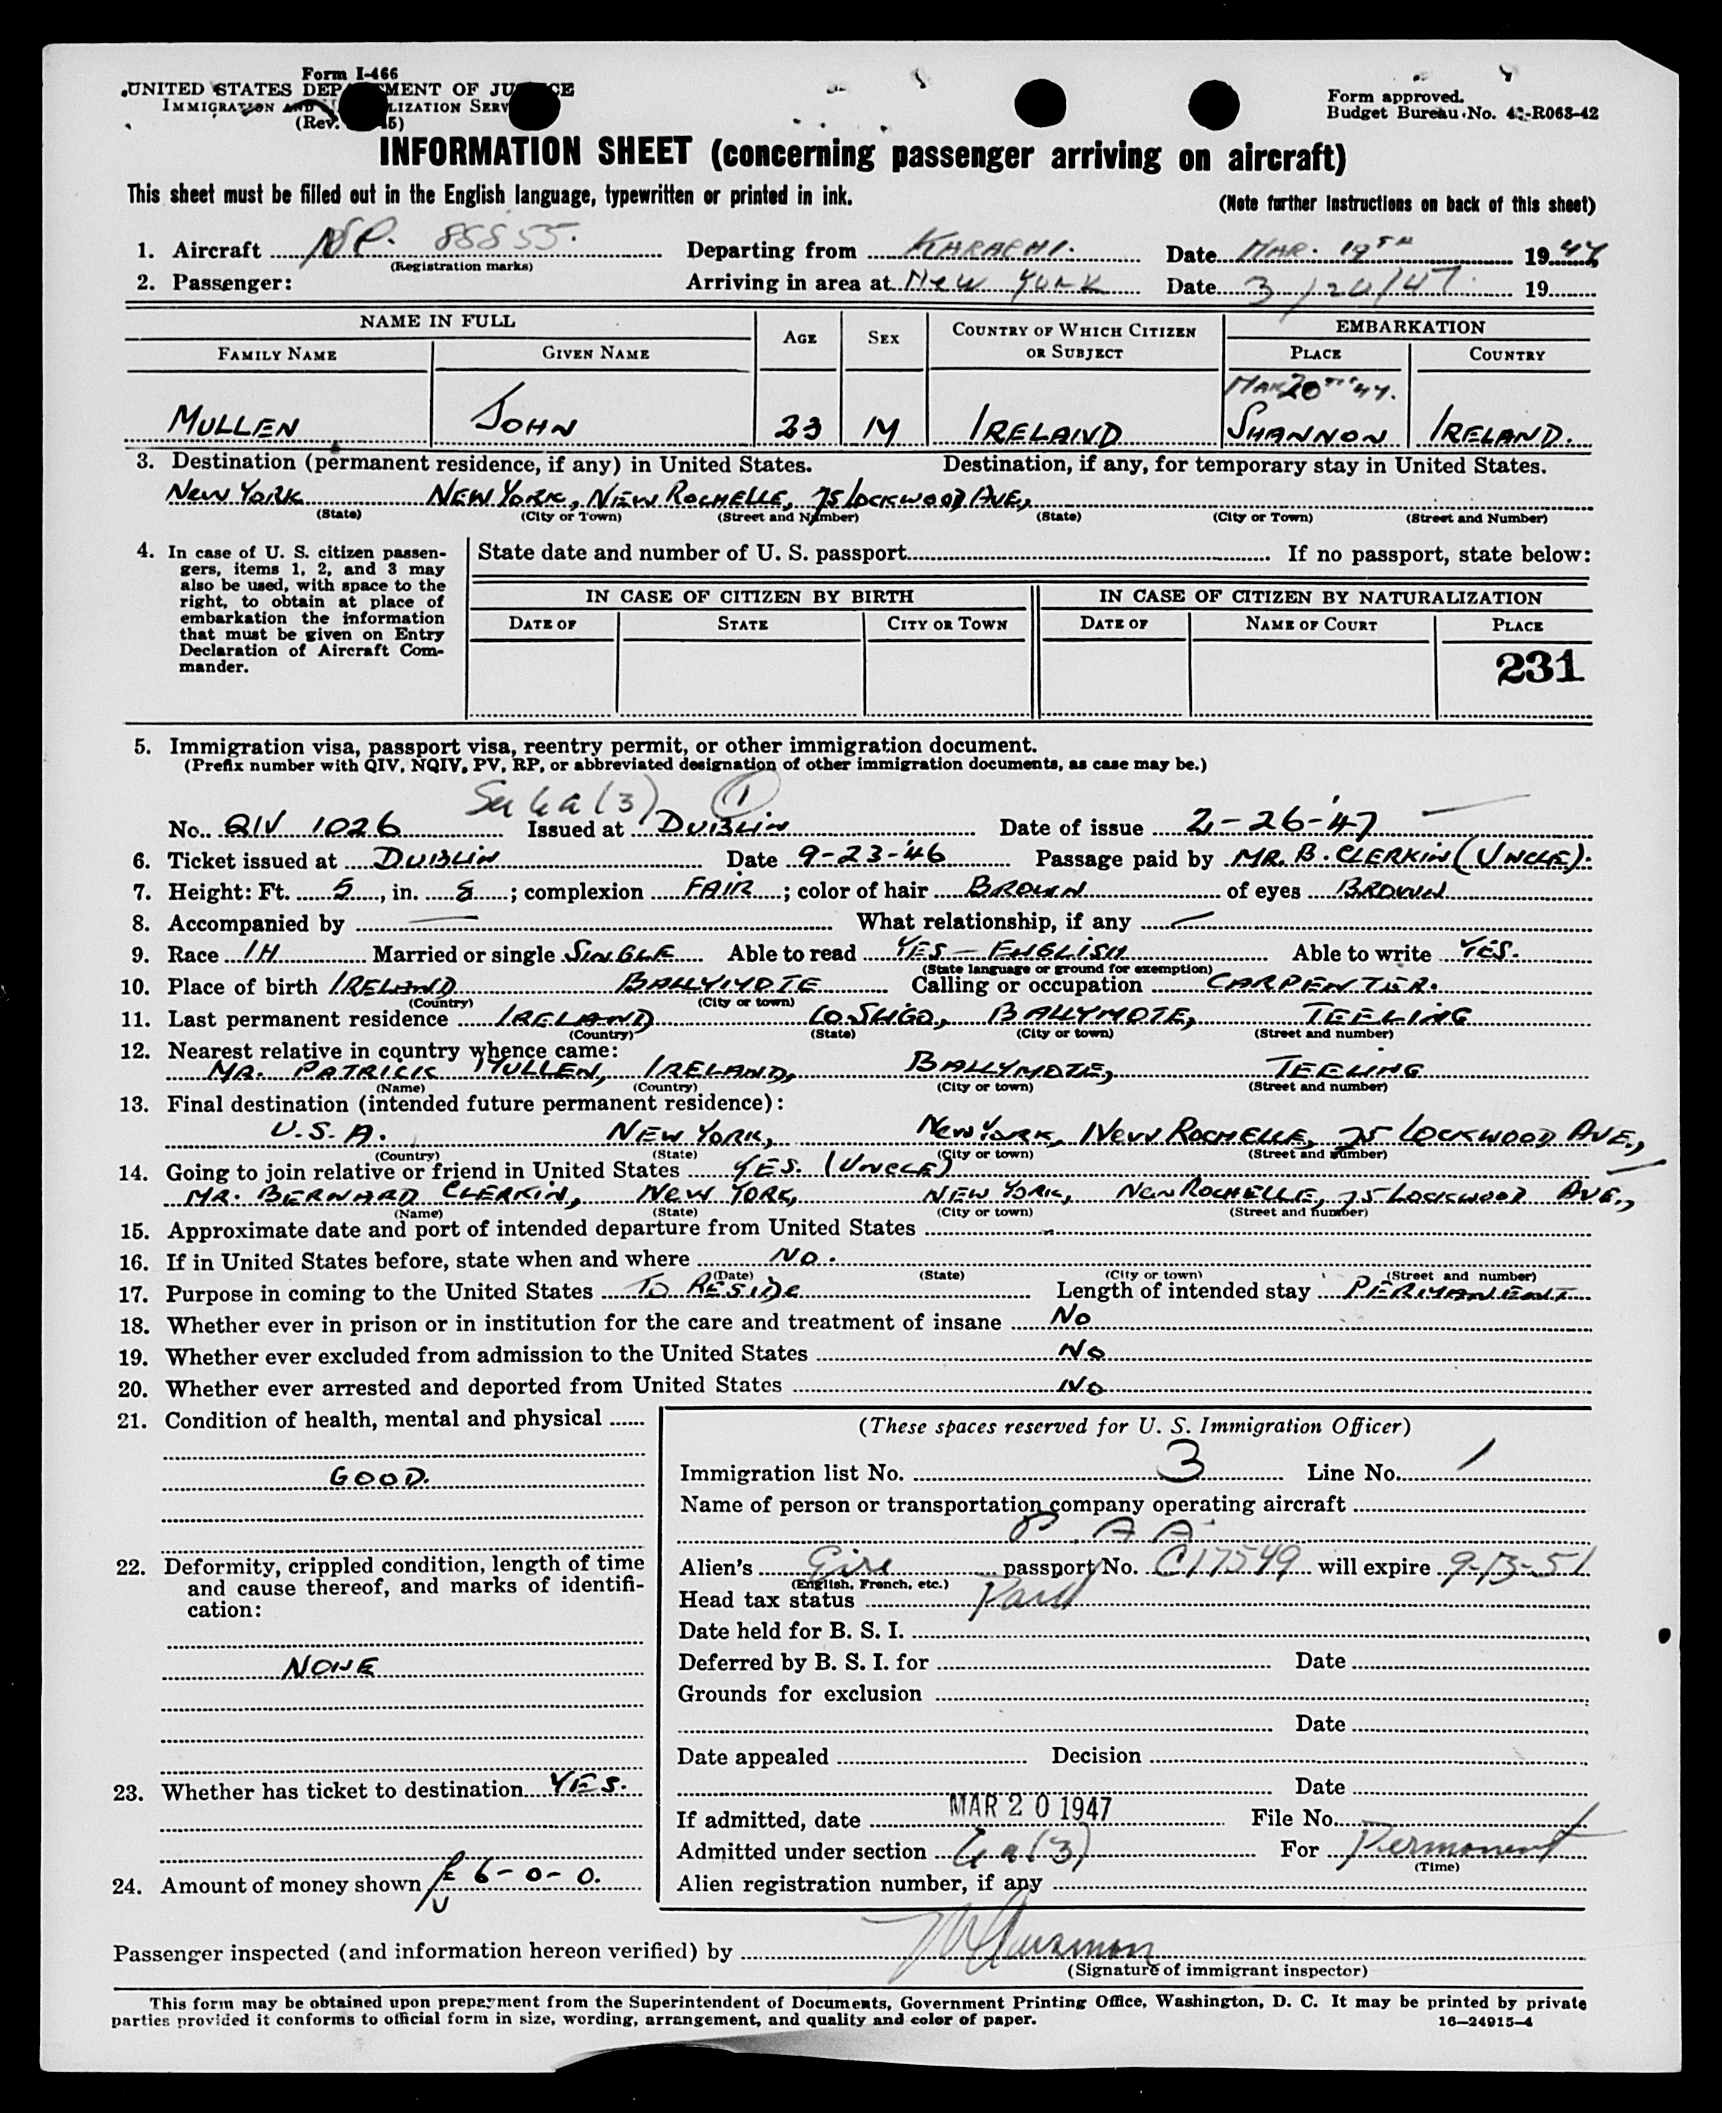 Form I-466
UNITED STATES DEPARTMENT OF JUSTICE
IMMIGRATION AND NATURALIZATION SERV
(Rev. 5)
Form approved.
Budget Bureau No. 43-R063-42
INFORMATION SHEET (concerning passenger arriving on aircraft)
This sheet must be filled out in the English language, typewritten or printed in ink.
(Note further instructions on back of this sheet)
1. Aircraft 88855. Departing from KARACHI. Date MAR. 19TH 1947
(Registration marks)
2. Passenger: Arriving in area at New York Date 3/20/47 19
NAME IN FULL AGE SEX COUNTRY OF WHICH CITIZEN OR SUBJECT EMBARKATION
FAMILY NAME GIVEN NAME PLACE COUNTRY
MAR 20TH 47.
MULLEN JOHN 23 M IRELAND SHANNON IRELAND.
3. Destination (permanent residence, if any) in United States. Destination, if any, for temporary stay in United States.
NEW YORK NEW YORK, NEW ROCHELLE, 75 LOCKWOOD AVE,
(State) (City or Town) (Street and Number) (State) (City or Town) (Street and Number)
4. In case of U. S. citizen passengers, items 1, 2, and 3 may also be used, with space to the right, to obtain at place of embarkation the information that must be given on Entry Declaration of Aircraft Commander.
State date and number of U. S. passport If no passport, state below:
IN CASE OF CITIZEN BY BIRTH IN CASE OF CITIZEN BY NATURALIZATION
DATE OF STATE CITY OR TOWN DATE OF NAME OF COURT PLACE
231
5. Immigration visa, passport visa, reentry permit, or other immigration document.
(Prefix number with QIV, NQIV, PV, RP, or abbreviated designation of other immigration documents, as case may be.)
Sec 4 a (3) 1
No. QIV 1026 Issued at DUBLIN Date of issue 2-26-47
6. Ticket issued at DUBLIN Date 9-23-46 Passage paid by MR. B. CLERKIN (UNCLE).
7. Height: Ft. 5, in. 8; complexion FAIR; color of hair BROWN of eyes BROWN
8. Accompanied by — What relationship, if any —
9. Race IH Married or single SINGLE Able to read YES - ENGLISH Able to write YES.
(State language or ground for exemption)
10. Place of birth IRELAND BALLYMOTE Calling or occupation CARPENTER.
(Country) (City or town)
11. Last permanent residence IRELAND CO SLIGO, BALLYMOTE, TEELING
(Country) (State) (City or town) (Street and number)
12. Nearest relative in country whence came:
MR. PATRICK MULLEN, IRELAND, BALLYMOTE, TEELING
(Name) (Country) (City or town) (Street and number)
13. Final destination (intended future permanent residence):
U.S.A. NEW YORK, NEW YORK, NEW ROCHELLE, 75 LOCKWOOD AVE.,
(Country) (State) (City or town) (Street and number)
14. Going to join relative or friend in United States YES. (UNCLE)
MR. BERNARD CLERKIN, NEW YORK, NEW YORK, NEW ROCHELLE, 75 LOCKWOOD AVE.,
(Name) (State) (City or town) (Street and number)
15. Approximate date and port of intended departure from United States
16. If in United States before, state when and where NO.
(Date) (State) (City or town) (Street and number)
17. Purpose in coming to the United States TO RESIDE Length of intended stay PERMANENT
18. Whether ever in prison or in institution for the care and treatment of insane NO
19. Whether ever excluded from admission to the United States NO
20. Whether ever arrested and deported from United States NO
21. Condition of health, mental and physical
GOOD.
22. Deformity, crippled condition, length of time and cause thereof, and marks of identification:
NONE
23. Whether has ticket to destination YES.
24. Amount of money shown £ 6-0-0.
(These spaces reserved for U. S. Immigration Officer)
Immigration list No. 3 Line No. 1
Name of person or transportation company operating aircraft
P A A
Alien's Eire passport No. C17549 will expire 9-13-51
(English, French, etc.)
Head tax status Paid
Date held for B. S. I.
Deferred by B. S. I. for Date
Grounds for exclusion
Date
Date appealed Decision
Date
If admitted, date MAR 20 1947 File No.
Admitted under section 4a(3) For Permanent
(Time)
Alien registration number, if any
Passenger inspected (and information hereon verified) by
(Signature of immigrant inspector)
This form may be obtained upon prepayment from the Superintendent of Documents, Government Printing Office, Washington, D. C. It may be printed by private
parties provided it conforms to official form in size, wording, arrangement, and quality and color of paper.
16—24915-4